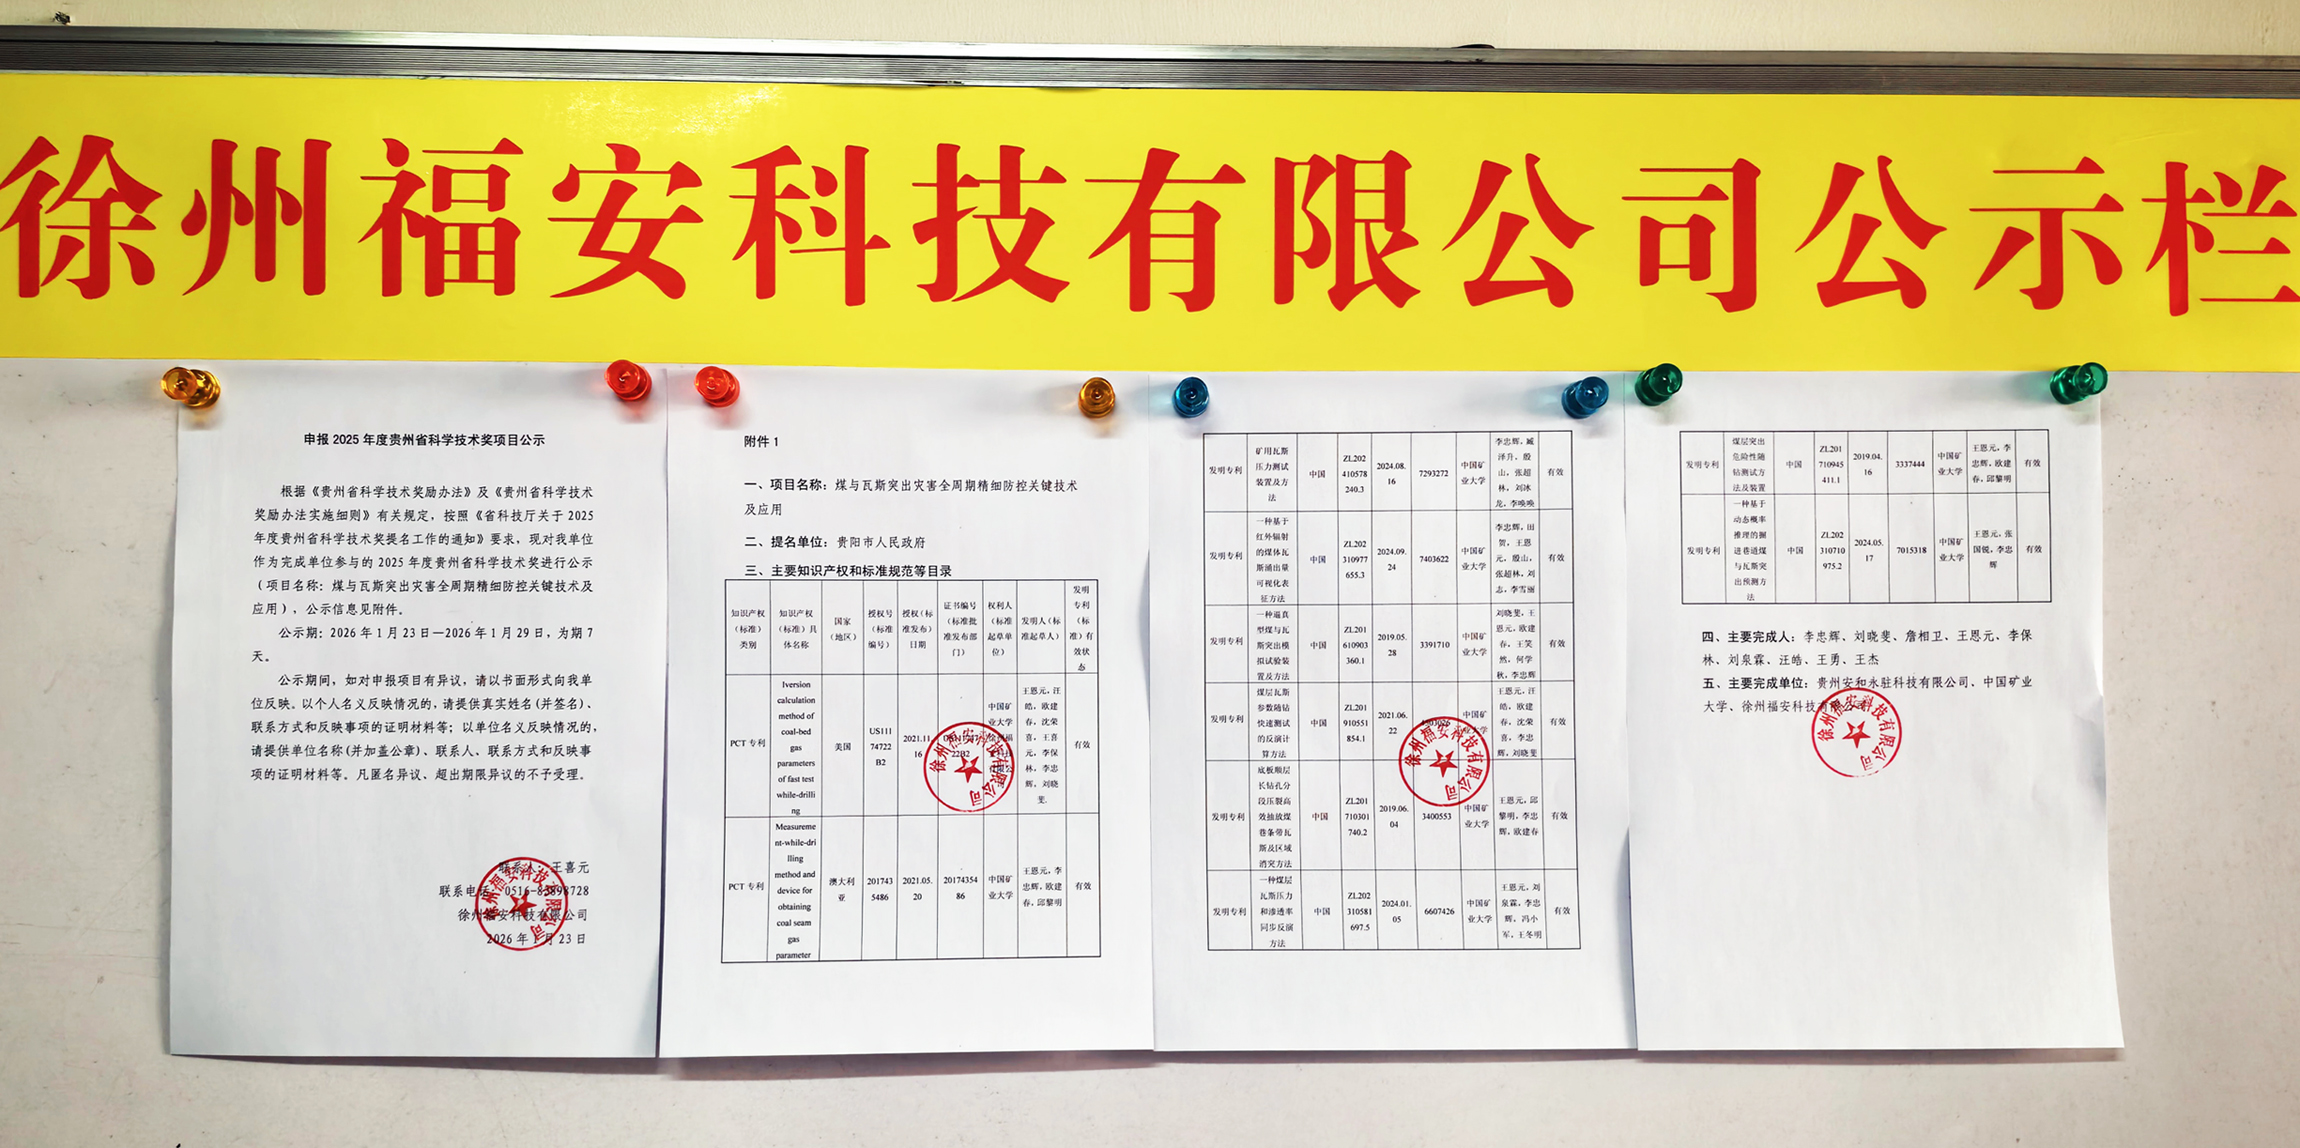 徐州福安科技有限公司公示栏
申报 2025 年度贵州省科学技术奖项目公示
根据《贵州省科学技术奖励办法》及《贵州省科学技术
奖励办法实施细则》有关规定，按照《省科技厅关于 2025
年度贵州省科学技术奖提名工作的通知》要求，现对我单位
作为完成单位参与的 2025 年度贵州省科学技术奖进行公示
（项目名称：煤与瓦斯突出灾害全周期精细防控关键技术及
应用），公示信息见附件。
公示期：2026 年 1 月 23 日—2026 年 1 月 29 日，为期 7
天。
公示期间，如对申报项目有异议，请以书面形式向我单
位反映。以个人名义反映情况的，请提供真实姓名（并签名）、
联系方式和反映事项的证明材料等；以单位名义反映情况的，
请提供单位名称（并加盖公章）、联系人、联系方式和反映事
项的证明材料等。凡匿名异议、超出期限异议的不予受理。
联系人：王喜元
联系电话：0516-83898728
徐州福安科技有限公司
2026 年 1 月 23 日
徐州福安科技有限公司
附件 1
一、项目名称：煤与瓦斯突出灾害全周期精细防控关键技术
及应用
二、提名单位：贵阳市人民政府
三、主要知识产权和标准规范等目录
知识产权（标准）类别 知识产权（标准）具体名称 国家（地区） 授权号（标准编号） 授权（标准发布）日期 证书编号（标准批准发布部门） 权利人（标准起草单位） 发明人（标准起草人） 发明专利（标准）有效状态
PCT 专利 Iversion calculation method of coal-bed gas parameters of fast test while-drilling 美国 US11174722B2 2021.11.16 中国矿业大学 王恩元，汪皓，欧建春，沈荣喜，王喜元，李保林，李忠辉，刘晓斐 有效
徐州福安科技有限公司
PCT 专利 Measurement-while-drilling method and device for obtaining coal seam gas parameter 澳大利亚 2017435486 2021.05.20 2017435486 中国矿业大学 王恩元，李忠辉，欧建春，邱黎明 有效
发明专利 矿用瓦斯压力测试装置及方法 中国 ZL202410578240.3 2024.08.16 7293272 中国矿业大学 李忠辉，臧泽升，殷山，张超林，刘冰龙，李唤唤 有效
发明专利 一种基于红外辐射的煤体瓦斯涌出量可视化表征方法 中国 ZL202310977655.3 2024.09.24 7403622 中国矿业大学 李忠辉，田贺，王恩元，殷山，张超林，刘志，李雪丽 有效
发明专利 一种逼真型煤与瓦斯突出模拟试验装置及方法 中国 ZL201610903360.1 2019.05.28 3391710 中国矿业大学 刘晓斐，王恩元，欧建春，王笑然，何学秋，李忠辉 有效
发明专利 煤层瓦斯参数随钻快速测试的反演计算方法 中国 ZL201910551854.1 2021.06.22 中国矿业大学 王恩元，汪皓，欧建春，沈荣喜，李忠辉，刘晓斐 有效
徐州福安科技有限公司
发明专利 底板顺层长钻孔分段压裂高效抽放煤巷条带瓦斯及区域消突方法 中国 ZL201710301740.2 2019.06.04 3400553 中国矿业大学 王恩元，邱黎明，李忠辉，欧建春 有效
发明专利 一种煤层瓦斯压力和渗透率同步反演方法 中国 ZL202310581697.5 2024.01.05 6607426 中国矿业大学 王恩元，刘泉霖，李忠辉，冯小军，王冬明 有效
发明专利 煤层突出危险性随钻测试方法及装置 中国 ZL201710945411.1 2019.04.16 3337444 中国矿业大学 王恩元，李忠辉，欧建春，邱黎明 有效
发明专利 一种基于动态概率推理的掘进巷道煤与瓦斯突出预测方法 中国 ZL202310710975.2 2024.05.17 7015318 中国矿业大学 王恩元，张国锐，李忠辉 有效
四、主要完成人：李忠辉、刘晓斐、詹相卫、王恩元、李保
林、刘泉霖、汪皓、王勇、王杰
五、主要完成单位：贵州安和永驻科技有限公司、中国矿业
大学、徐州福安科技有限公司
徐州福安科技有限公司